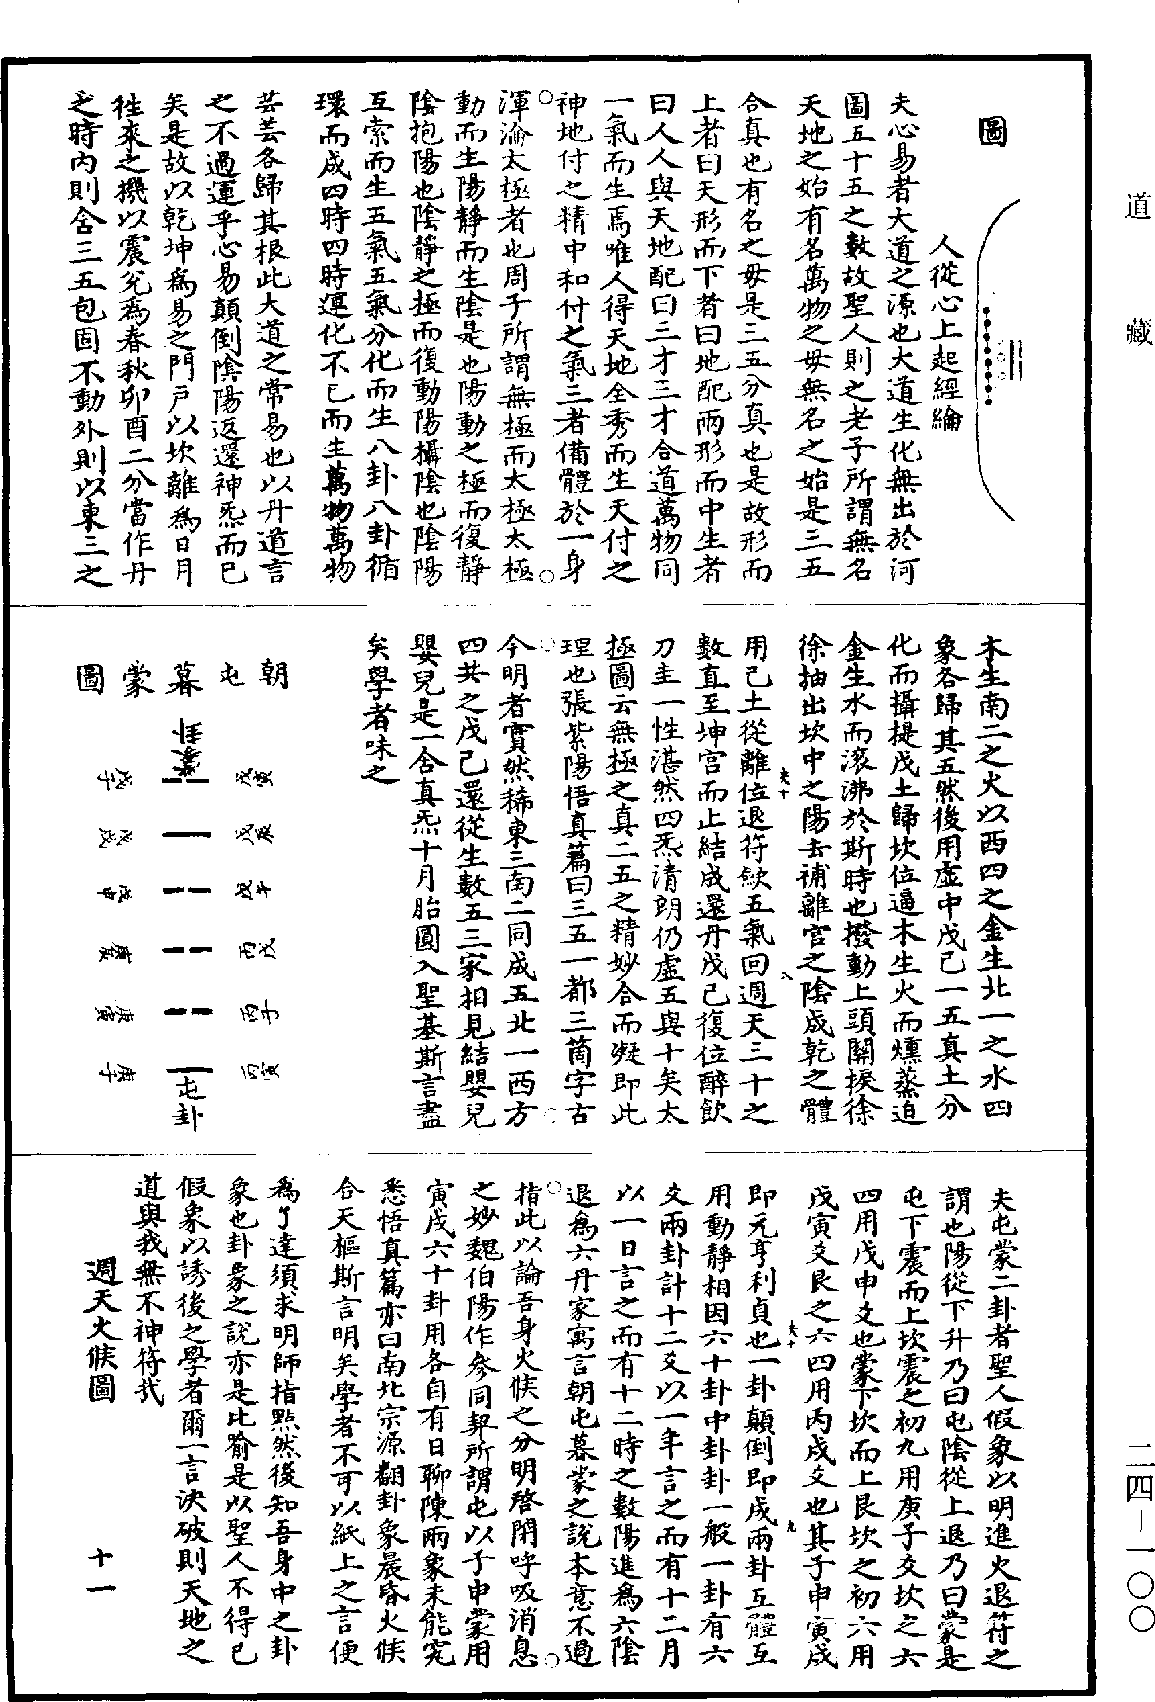 道藏
二四—一〇〇
圖
人從心上起經綸
夫心易者大道之源也大道生化無出於河
圖五十五之數故聖人則之老子所謂無名
天地之始有名萬物之毋無名之始是三五
合真也有名之毋是三五分真也是故形而
上者曰天形而下者曰地配兩形而中生者
曰人人與天地配曰三才三才合道萬物同
一氣而生焉唯人得天地全秀而生天付之
神地付之精中和付之氣三者備體於一身
渾淪太極者也周子所謂無極而太極太極
動而生陽靜而生陰是也陽動之極而復靜
陰抱陽也陰靜之極而復動陽攝陰也陰陽
互索而生五氣五氣分化而生八卦八卦循
環而成四時四時運化不已而生萬物萬物
芸芸各歸其根此大道之常易也以丹道言
之不過運乎心易顛倒陰陽返還神炁而已
矣是故以乾坤為易之門戶以坎離為日月
徃來之機以震兌為春秋卯酉二分當作丹
之時內則含三五包固不動外則以東三之
木生南二之火以西四之金生北一之水四
象各歸其五然後用虛中戊己一五真土分
化而攝提戊土歸坎位逼木生火而燻蒸迫
金生水而滚沸於斯時也撥動上頭關捩徐
徐抽出坎中之陽去補離宮之陰成乾之體
用己土從離位退符歛五氣回週天三十之
數直至坤宮而止結成還丹戊己復位醉飲
刀圭一性湛然四炁清朗仍虛五與十矣太
極圖云無極之真二五之精妙合而凝即此
理也張紫陽悟真篇曰三五一都三箇字古
今明者實然稀東三南二同成五北一西方
四共之戊己還從生數五三家相見結嬰兒
嬰兒是一含真炁十月胎圓入聖基斯言盡
矣學者味之
朝屯暮蒙圖
屯卦
夫屯蒙二卦者聖人假象以明進火退符之
謂也陽從下升乃曰屯陰從上退乃曰蒙是
屯下震而上坎震之初九用庚子爻坎之六
四用戊申爻也蒙下坎而上艮坎之初六用
戊寅爻艮之六四用丙戌爻也其子申寅戌
即元亨利貞也一卦顛倒即成兩卦互體互
用動靜相因六十卦中卦卦一般一卦有六
爻兩卦計十二爻以一年言之而有十二月
以一日言之而有十二時之數陽進為六陰
退為六丹家寓言朝屯暮蒙之說本意不過
指此以論吾身火候之分明啓閉呼吸消息
之妙魏伯陽作參同契所謂屯以子申蒙用
寅戌六十卦用各自有日聊陳兩象未能究
悉悟真篇亦曰南北宗源翻卦象晨昏火候
合天樞斯言明矣學者不可以紙上之言便
為了達須求明師指㸃然後知吾身中之卦
象也卦象之說亦是比喻是以聖人不得已
假象以誘後之學者爾一言決破則天地之
道與我無不神符弐
週天火候圖
十一